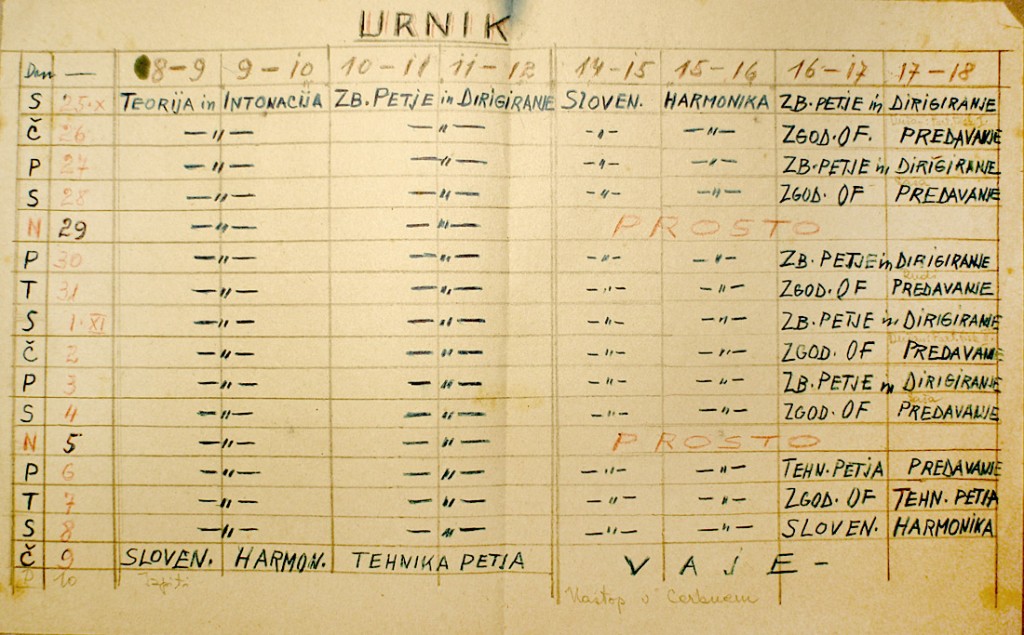 URNIK
Dan — 8-9 9-10 10-11 11-12 14-15 15-16 16-17 17-18
S 25·X TEORIJA in INTONACIJA ZB. PETJE in DIRIGIRANJE SLOVEN. HARMONIKA ZB. PETJE in DIRIGIRANJE
Č 26 —〃— —〃— -〃- —〃— ZGOD. OF. PREDAVANJE
P 27 —〃— —〃— -〃- —〃— ZB. PETJE in DIRIGIRANJE
S 28 —〃— —〃— -〃- —〃— ZGOD. OF PREDAVANJE
N 29 —〃— —〃— PROSTO
P 30 —〃— —〃— -〃- -〃- ZB. PETJE in DIRIGIRANJE
T 31 —〃— —〃— -〃- -〃- ZGOD. OF PREDAVANJE
S 1·XI —〃— —〃— -〃- —〃— ZB. PETJE in DIRIGIRANJE
Č 2 —〃— —〃— -〃- —〃— ZGOD. OF PREDAVANJE
P 3 —〃— —〃— -〃- —〃— ZB. PETJE in DIRIGIRANJE
S 4 —〃— —〃— -〃- —〃— ZGOD. OF PREDAVANJE
N 5 —〃— —〃— PROSTO
P 6 —〃— —〃— —〃- —〃— TEHN. PETJA PREDAVANJE
T 7 —〃— —〃— -〃- —〃— ZGOD. OF TEHN. PETJA
S 8 —〃— —〃— —〃- —〃— SLOVEN. HARMONIKA
Č 9 SLOVEN. HARMON. TEHNIKA PETJA VAJE -
P 10 Izpiti
Nastop v